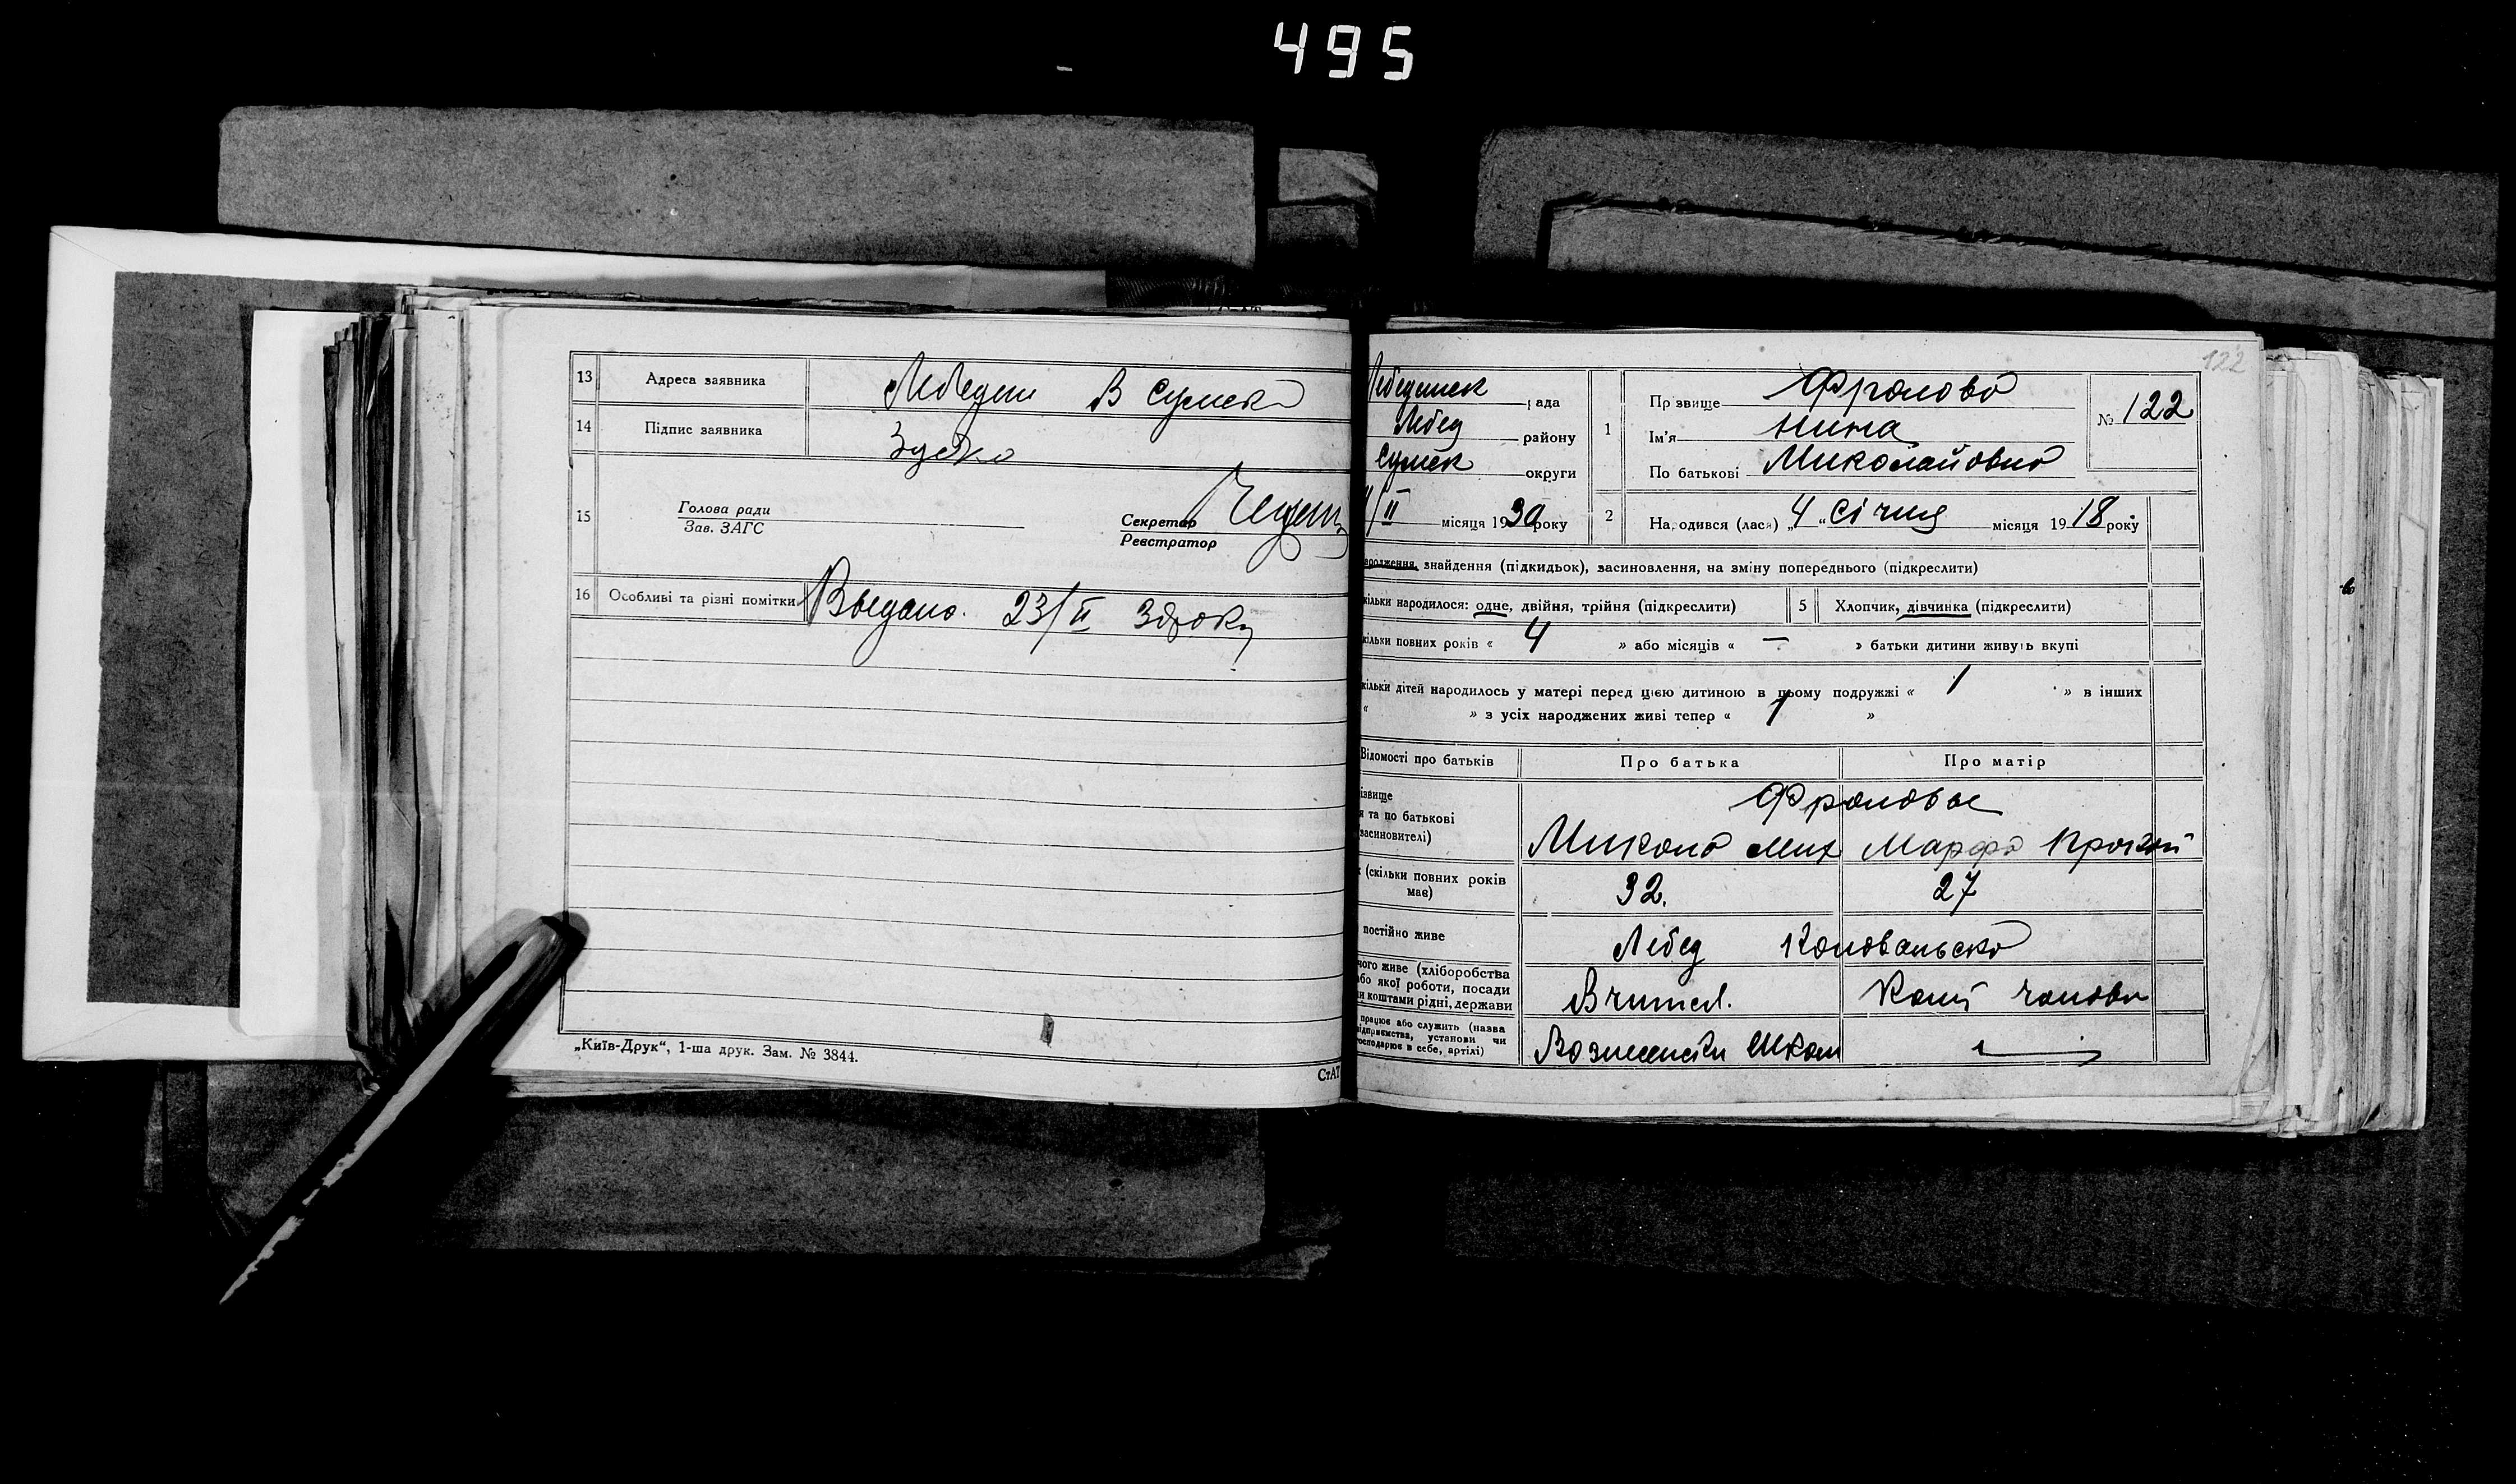 495
13 Адреса заявника Лебедин В Сумска
14 Підпис заявника
15 Голова ради
Зав. ЗАГС
Секретар
Реєстратор
16 Особливі та різні помітки Выдано. 23/II 30 року
„Київ-Друк“, 1-ша друк. Зам. № 3844.
СтАТ
122
Лебединск рада
Лебед району
Сумск округи
/II місяця 1930 року
1 Прізвище Фролова
Ім'я Нина
По батькові Миколайовна
№ 122
2 Народився (лася) „4“ Січня місяця 1918 року
ародження, знайдення (підкидьок), засиновлення, на зміну попереднього (підкреслити)
кільки народилося: одне, двійня, трійня (підкреслити) 5 Хлопчик, дівчинка (підкреслити)
кільки повних років « 4 » або місяців « — » батьки дитини живуть вкупі
кільки дітей народилось у матері перед цією дитиною в цьому подружжі « 1 » в інших
« » з усіх народжених живі тепер « 1 »
Відомості про батьків Про батька Про матір
ізвище
я та по батькові
засиновителі)
Фроловы
Микола Мих Марфа
к (скільки повних років
має)
32. 27
постійно живе Лебед
чого живе (хліборобства
або якої роботи, посади
чи коштами рідні, держави
Вчител. Кошт чолов
працює або служить (назва
підприємства, установи чи
господарює в себе, артілі)
Школ